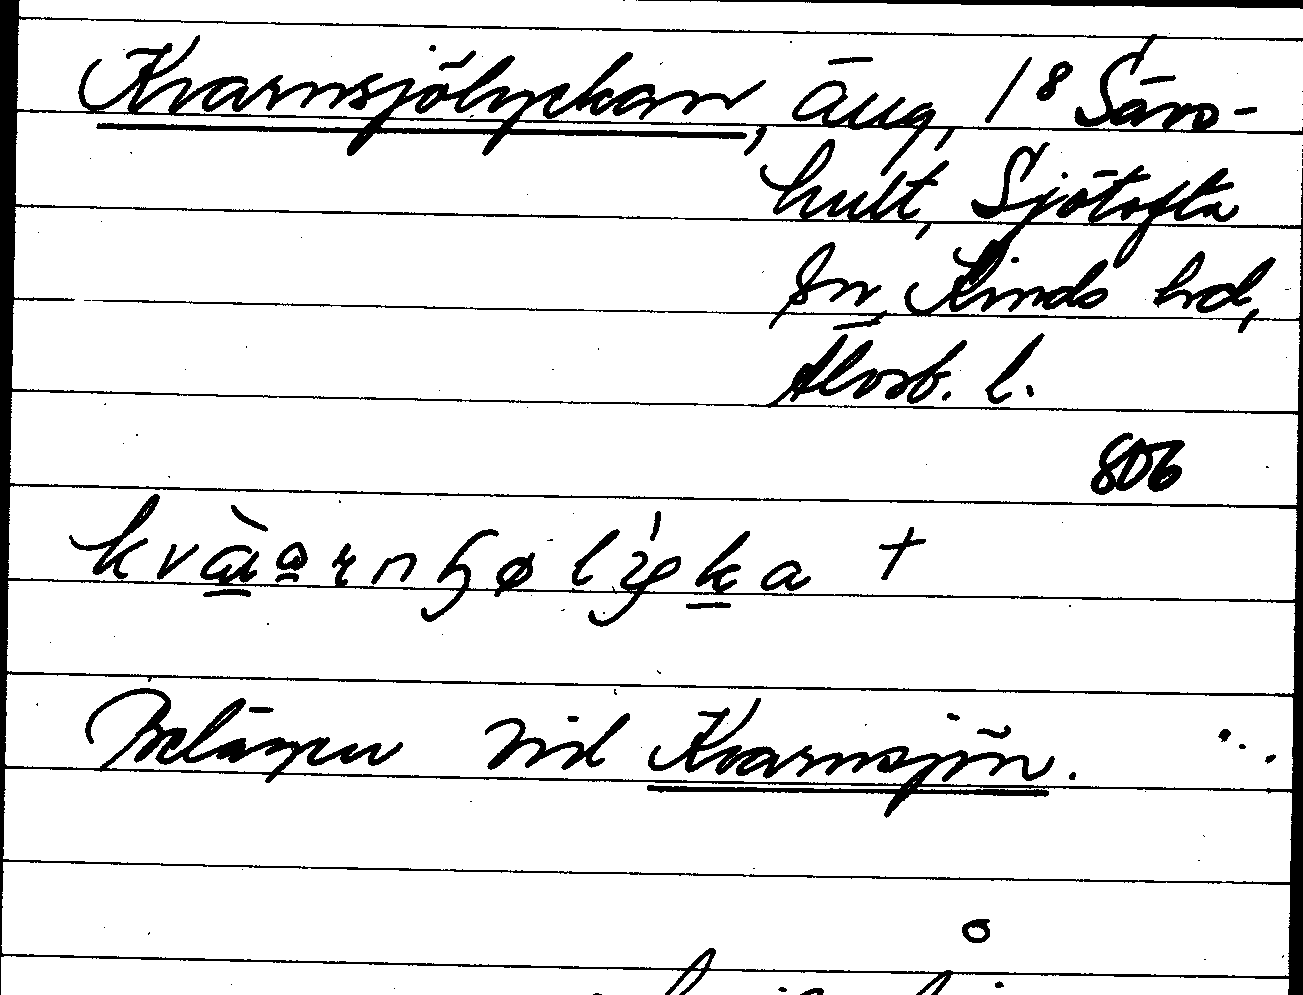 Kvarnsjölyckan, äng, 1⁸ Särs-
hult, Sjötofta
sn, Kinds hd,
Älvsb. l.
806
Belägen vid Kvarnsjön.